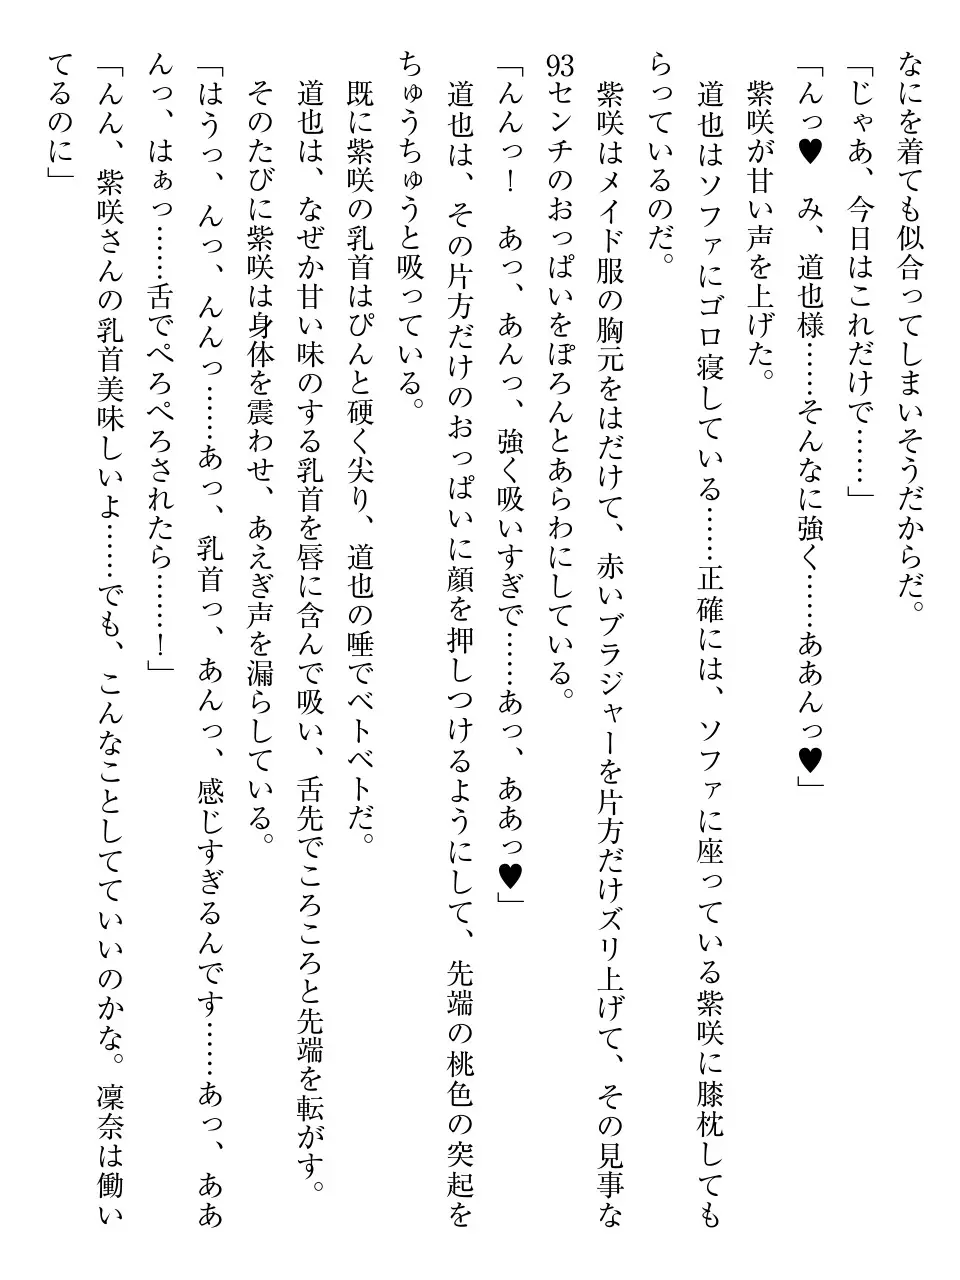 なにを着ても似合ってしまいそうだからだ。
「じゃあ、今日はこれだけで……」
「んっ♥　み、道也様……そんなに強く……ああんっ♥」
　紫咲が甘い声を上げた。
　道也はソファにゴロ寝している……正確には、ソファに座っている紫咲に膝枕しても
らっているのだ。
　紫咲はメイド服の胸元をはだけて、赤いブラジャーを片方だけズリ上げて、その見事な
93センチのおっぱいをぽろんとあらわにしている。
「んんっ！　あっ、あんっ、強く吸いすぎで……あっ、ああっ♥」
　道也は、その片方だけのおっぱいに顔を押しつけるようにして、先端の桃色の突起を
ちゅうちゅうと吸っている。
　既に紫咲の乳首はぴんと硬く尖り、道也の唾でベトベトだ。
　道也は、なぜか甘い味のする乳首を唇に含んで吸い、舌先でころころと先端を転がす。
　そのたびに紫咲は身体を震わせ、あえぎ声を漏らしている。
「はうっ、んっ、んんっ……あっ、乳首っ、あんっ、感じすぎるんです……あっ、ああ
んっ、はぁっ……舌でぺろぺろされたら……！」
「んん、紫咲さんの乳首美味しいよ……でも、こんなことしてていいのかな。凜奈は働い
てるのに」